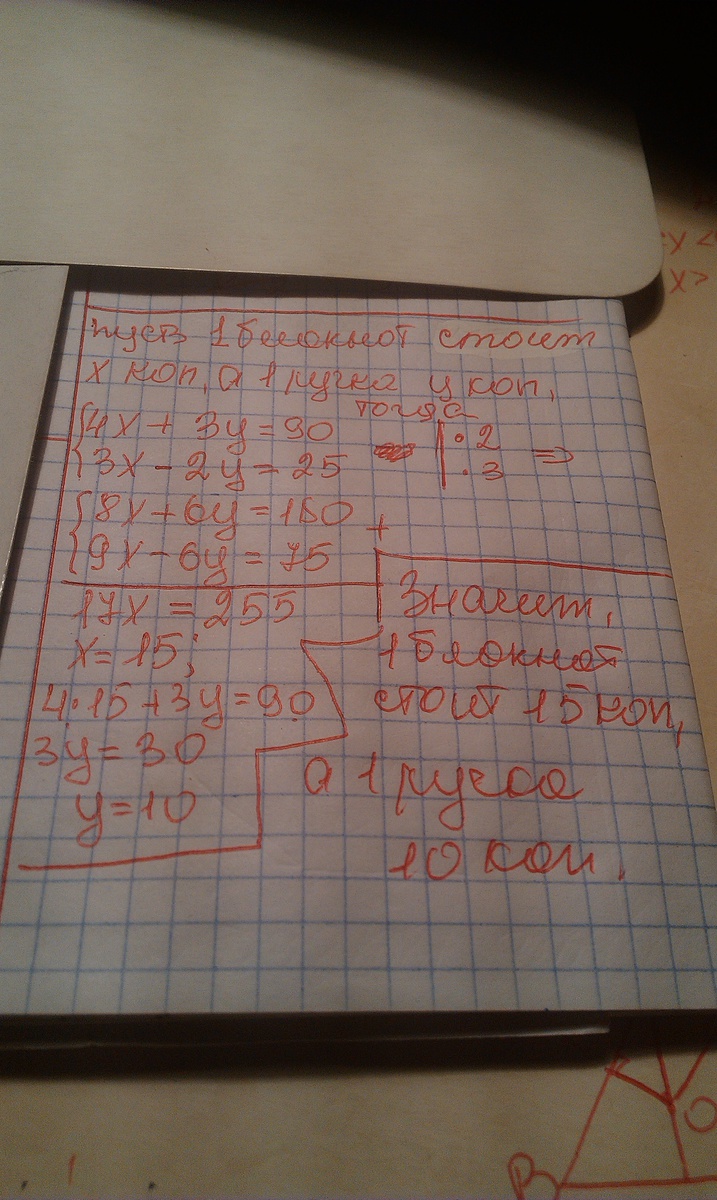 пусть 1 блокнот стоит
x коп, а 1 ручка y коп,
тогда
{4x + 3y = 90 |·2
{3x - 2y = 25 |·3 =>
{8x + 6y = 180 +
{9x - 6y = 75
17x = 255
x = 15;
4·15 + 3y = 90
3y = 30
y = 10
Значит,
1 блокнот
стоит 15 коп,
а 1 ручка
10 коп.
x <
x >
B
O